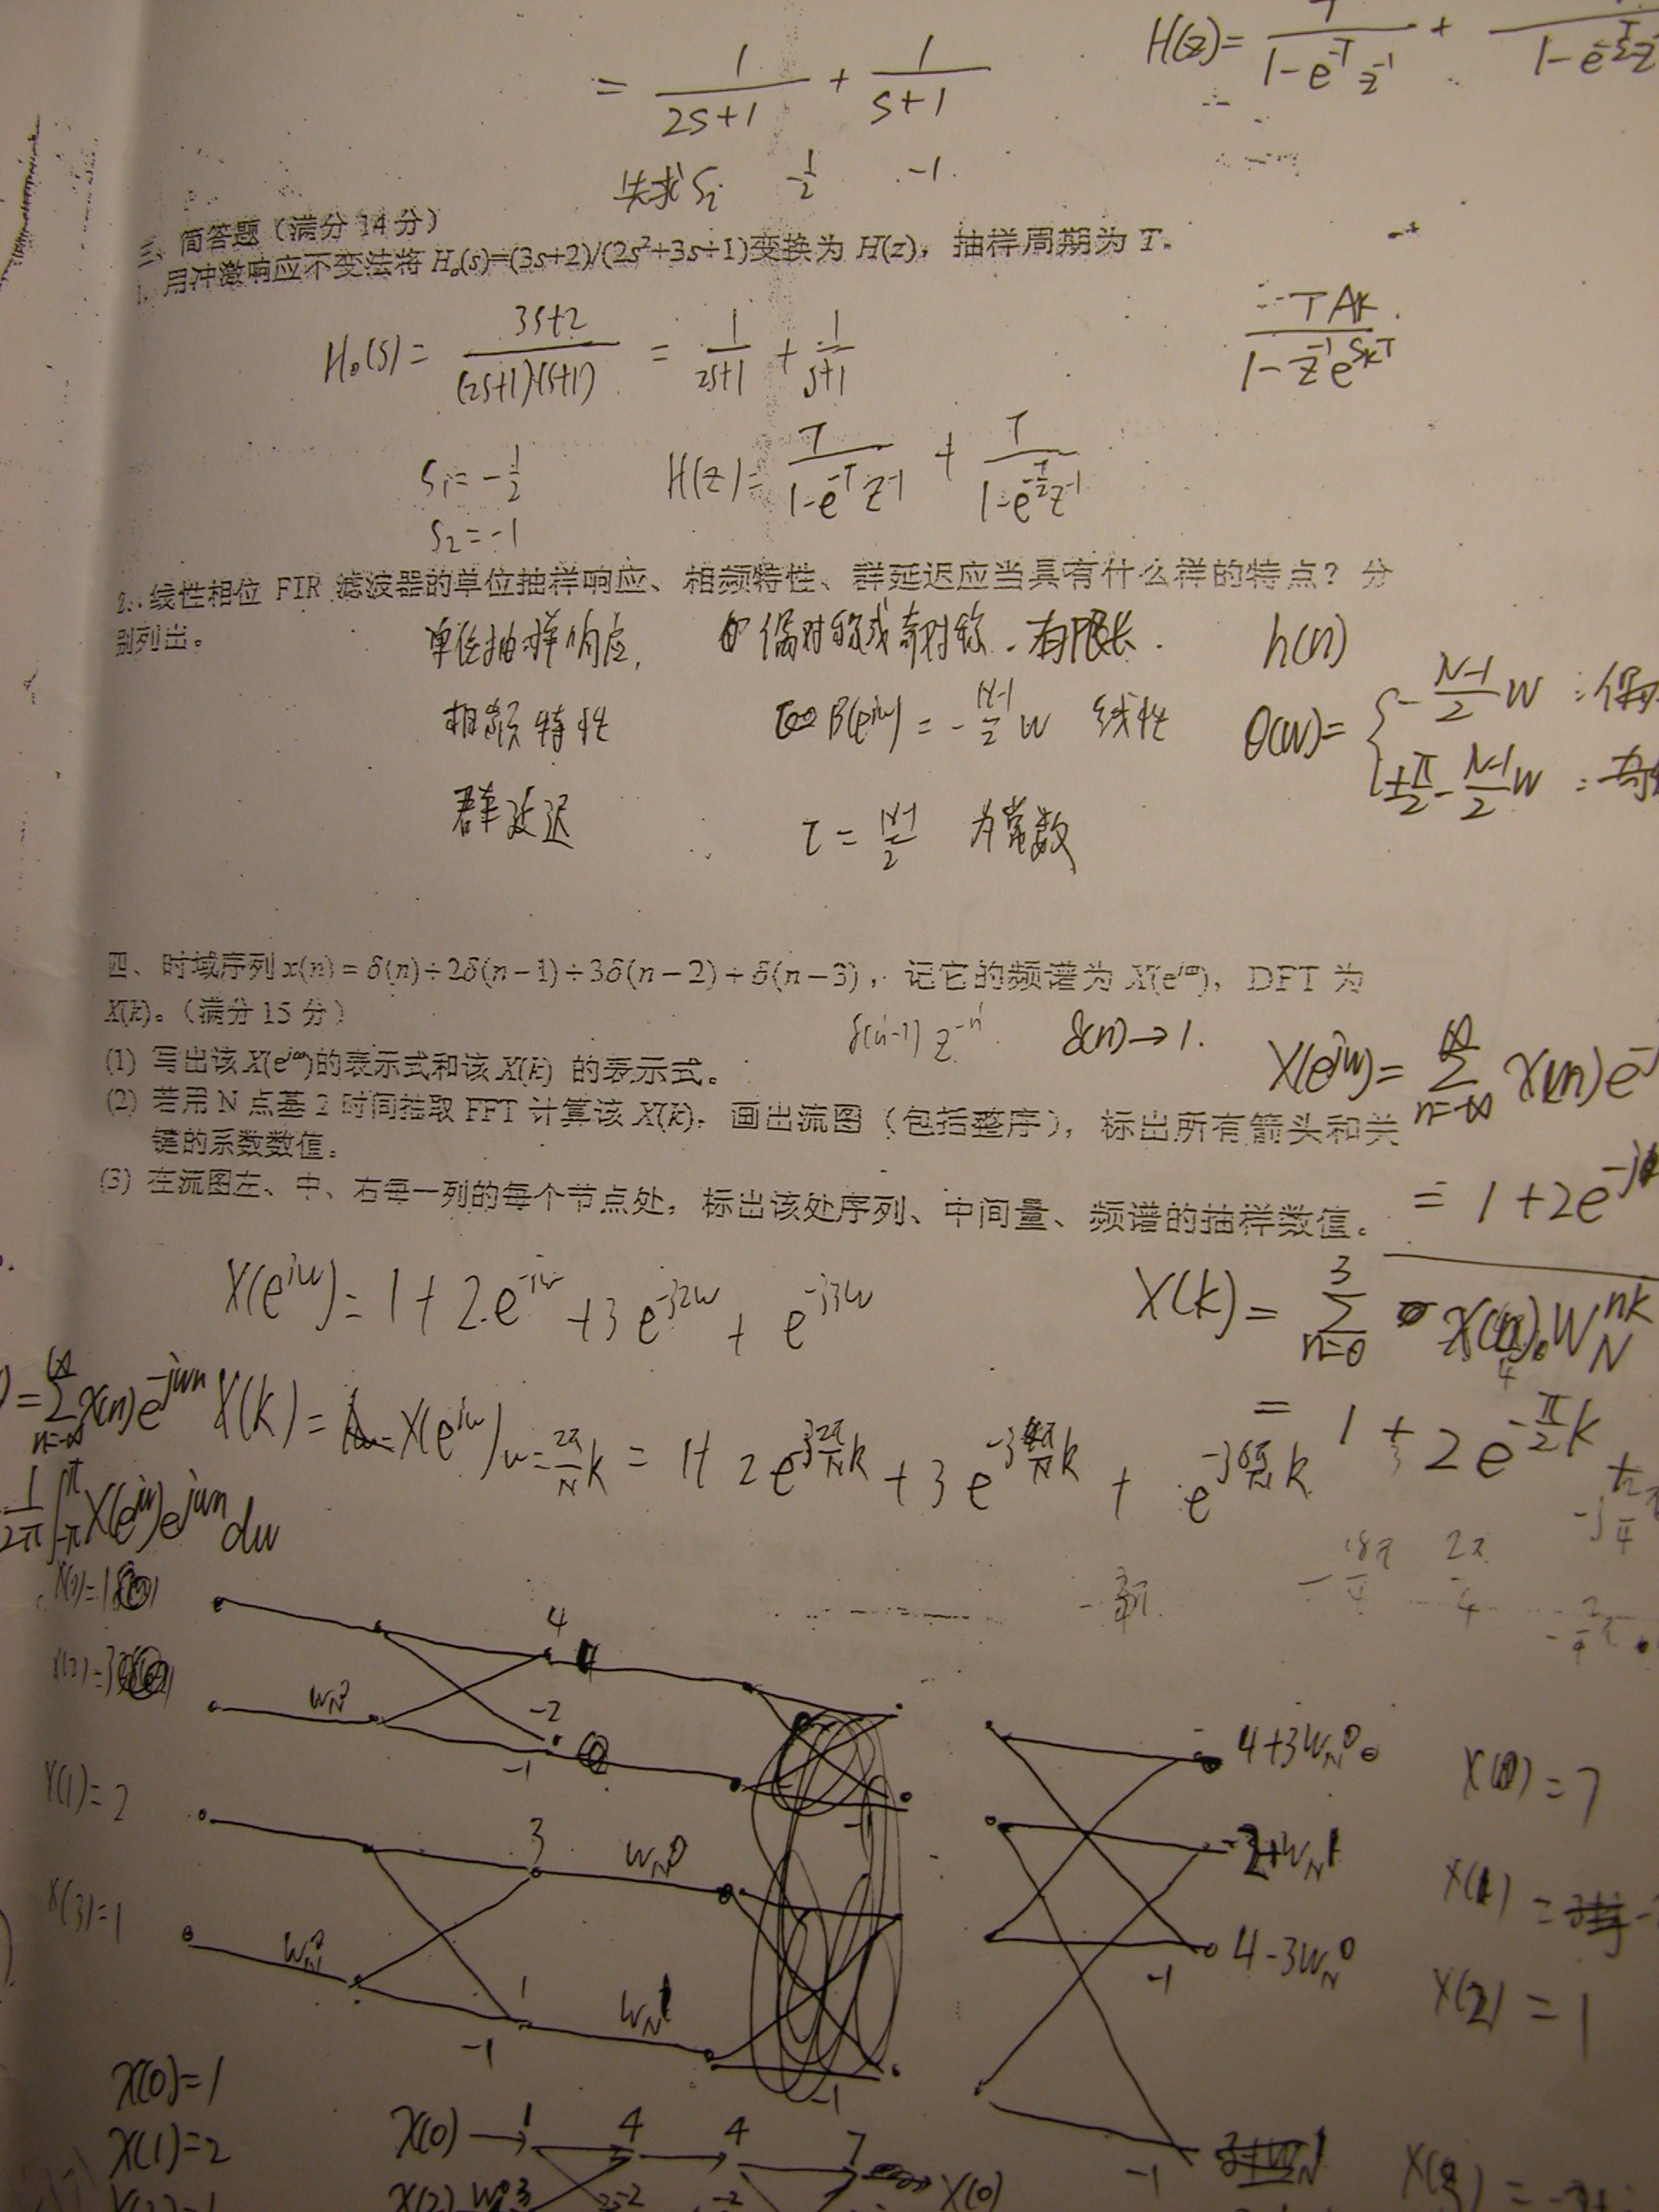 = 1/(2s+1) + 1/(s+1)
H(z)= T/(1-e^{-T}z^{-1}) +
1-e^{-T/2}z
失求 Si -1/2 -1.
三、简答题（满分14分）
1. 用冲激响应不变法将 Ha(s)=(3s+2)/(2s²+3s+1)变换为 H(z)，抽样周期为 T。
Ha(s)= (3s+2)/((2s+1)(s+1)) = 1/(2s+1) + 1/(s+1)
TAk/(1-z^{-1}e^{SkT})
S1=-1/2
S2=-1
H(z)= T/(1-e^{-T}z^{-1}) + T/(1-e^{-T/2}z^{-1})
2. 线性相位 FIR 滤波器的单位抽样响应、相频特性、群延迟应当具有什么样的特点？分
别列出。
单位抽样响应, 偶对称或奇对称. 有限长. h(n)
相频特性 β(e^{jw}) = -(N-1)/2 w 线性
θ(w)= { -(N-1)/2 w : 偶
±π/2 - (N-1)/2 w : 奇
群延迟 τ = (N-1)/2 为常数
四、时域序列 x(n) = δ(n)+2δ(n-1)+3δ(n-2)+δ(n-3)，记它的频谱为 X(e^{jω})，DFT 为
X(k)。（满分15分）
δ(n-1) z^{-n} δ(n)→1.
(1) 写出该 X(e^{jω})的表示式和该 X(k) 的表示式。
X(e^{jw})= Σ_{n=-∞}^{∞} x(n)e^{-j
(2) 若用 N 点基 2 时间抽取 FFT 计算该 X(k)，画出流图（包括整序），标出所有箭头和关
键的系数数值。
(3) 在流图左、中、右每一列的每个节点处，标出该处序列、中间量、频谱的抽样数值。
= 1+2e^{-j
X(e^{jw}) = 1+2e^{-jw} +3e^{-j2w} + e^{-j3w}
X(k) = Σ_{n=0}^{3} x(n) W_N^{nk}
) = Σ_{n=-∞}^{∞} x(n)e^{-jwn}
X(k) = X(e^{jw})|_{w=2π/N k} = 1+ 2e^{-j2π/N k} +3e^{-j4π/N k} + e^{-j6π/N k}
= 1 + 2e^{-π/2 k} +
1/2π ∫_{-π}^{π} X(e^{jw})e^{jwn} dw
2π/4
X(0)=1
4 4
X(2)=3
W_N^0
-2
-1
4+3W_N^0
X(0) = 7
X(1)=2
-1
-2+W_N^1
3
W_N^0
X(1) =
X(3)=1
W_N^0
4-3W_N^0
-1
X(2) = 1
1
W_N^1
-1
-1
-1
X(3) =
X(0)=1
X(1)=2
X(0) → 1 4 4 7 → X(0)
X(2) W_N^0 3 -2 -2